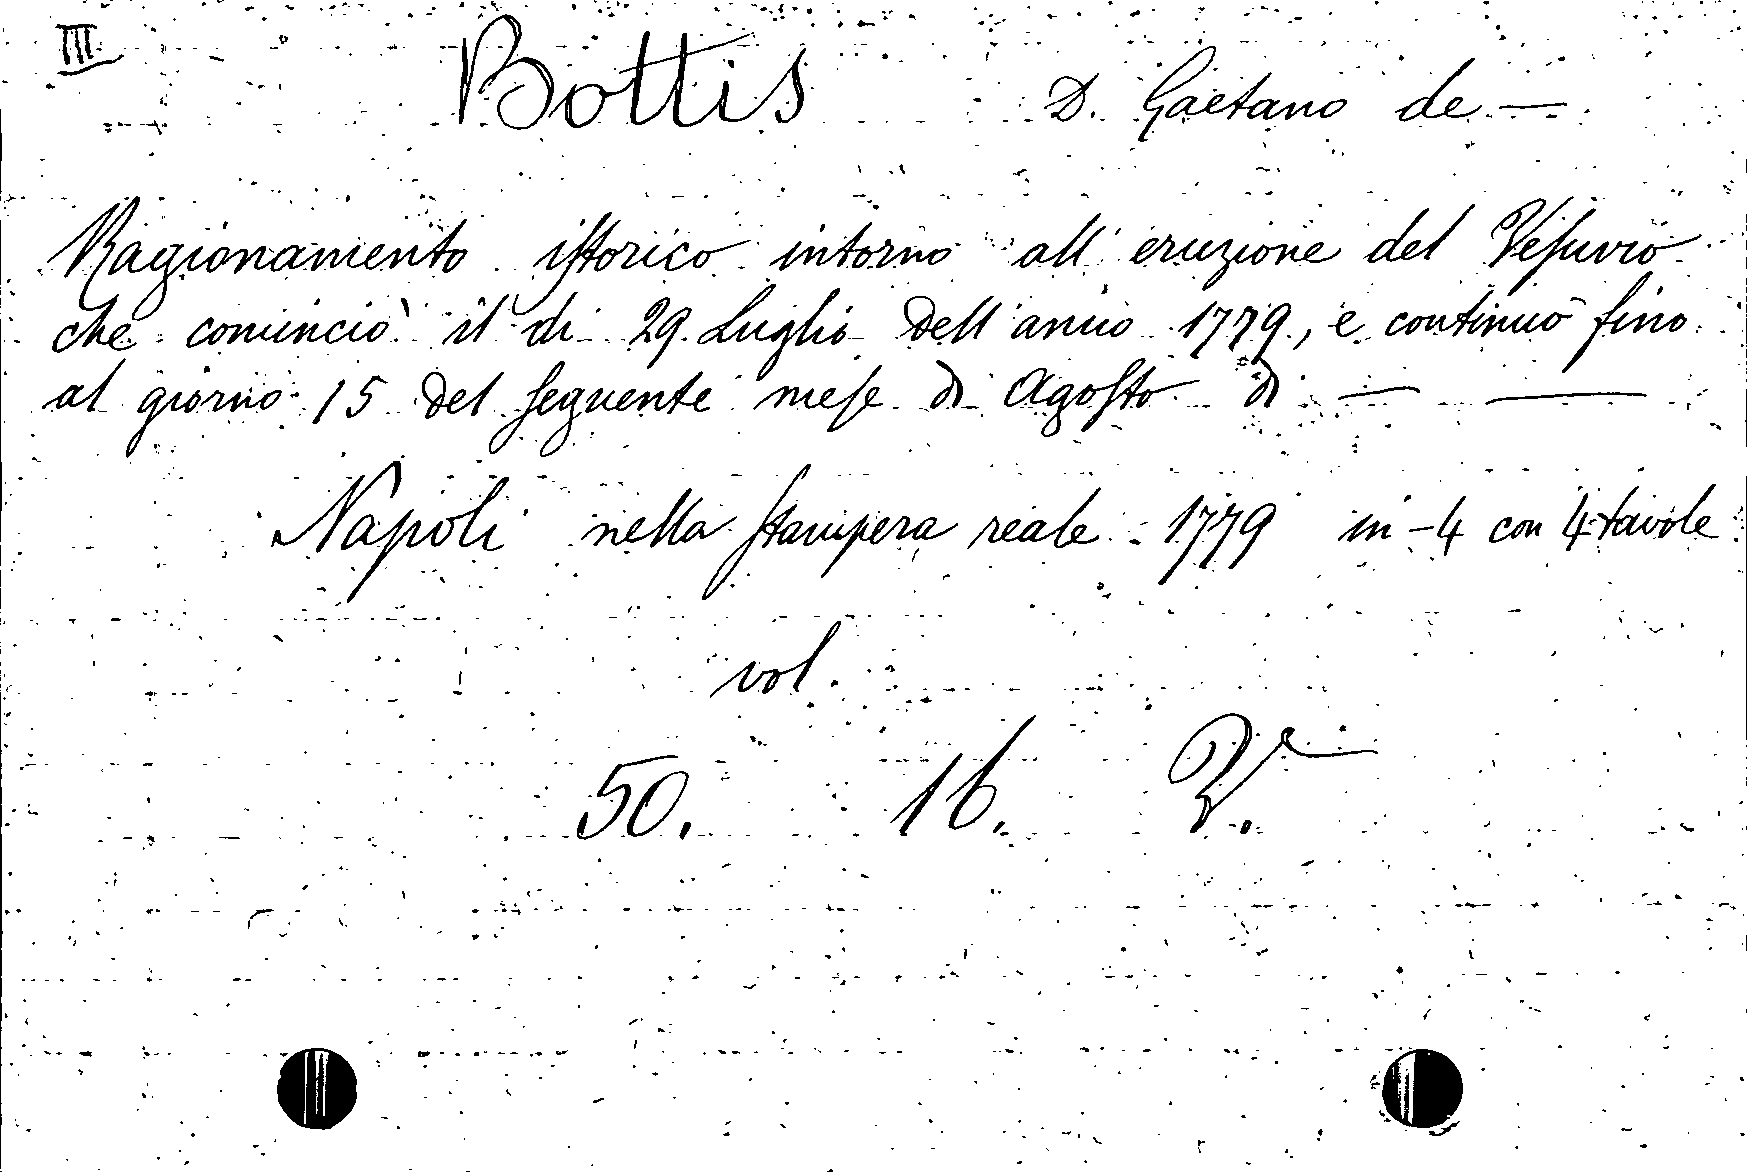 III
Bottis D. Gaetano de —
Ragionamento iſtorico intorno all' eruzione del Veſuvio
che cominciò il di 29. Luglio dell' anno 1779, e continuò fino
al giorno 15 del ſeguente meſe di Agoſto di — —
Napoli nella ſtamperia reale 1779 in-4 con 4 tavole
vol.
50. 16.